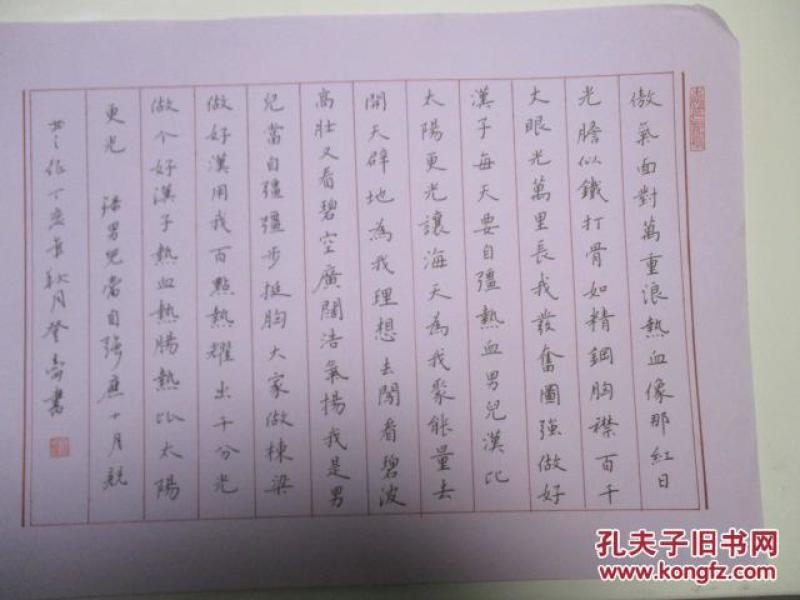 傲氣面對萬重浪熱血像那紅日
光膽似鐵打骨如精鋼胸襟百千
丈眼光萬里長我發奮圖強做好
漢子每天要自彊熱血男兒漢比
太陽更光讓海天為我聚能量去
開天辟地為我理想去闖看碧波
高壮又看碧空廣闊浩氣揚我是男
兒當自彊彊步挺胸大家做棟梁
做好漢用我百點熱耀出千分光
做个好漢子熱血熱腸熱比太陽
更光 男兒當自強 十月
丁亥年秋月 書
孔夫子旧书网
www.kongfz.com